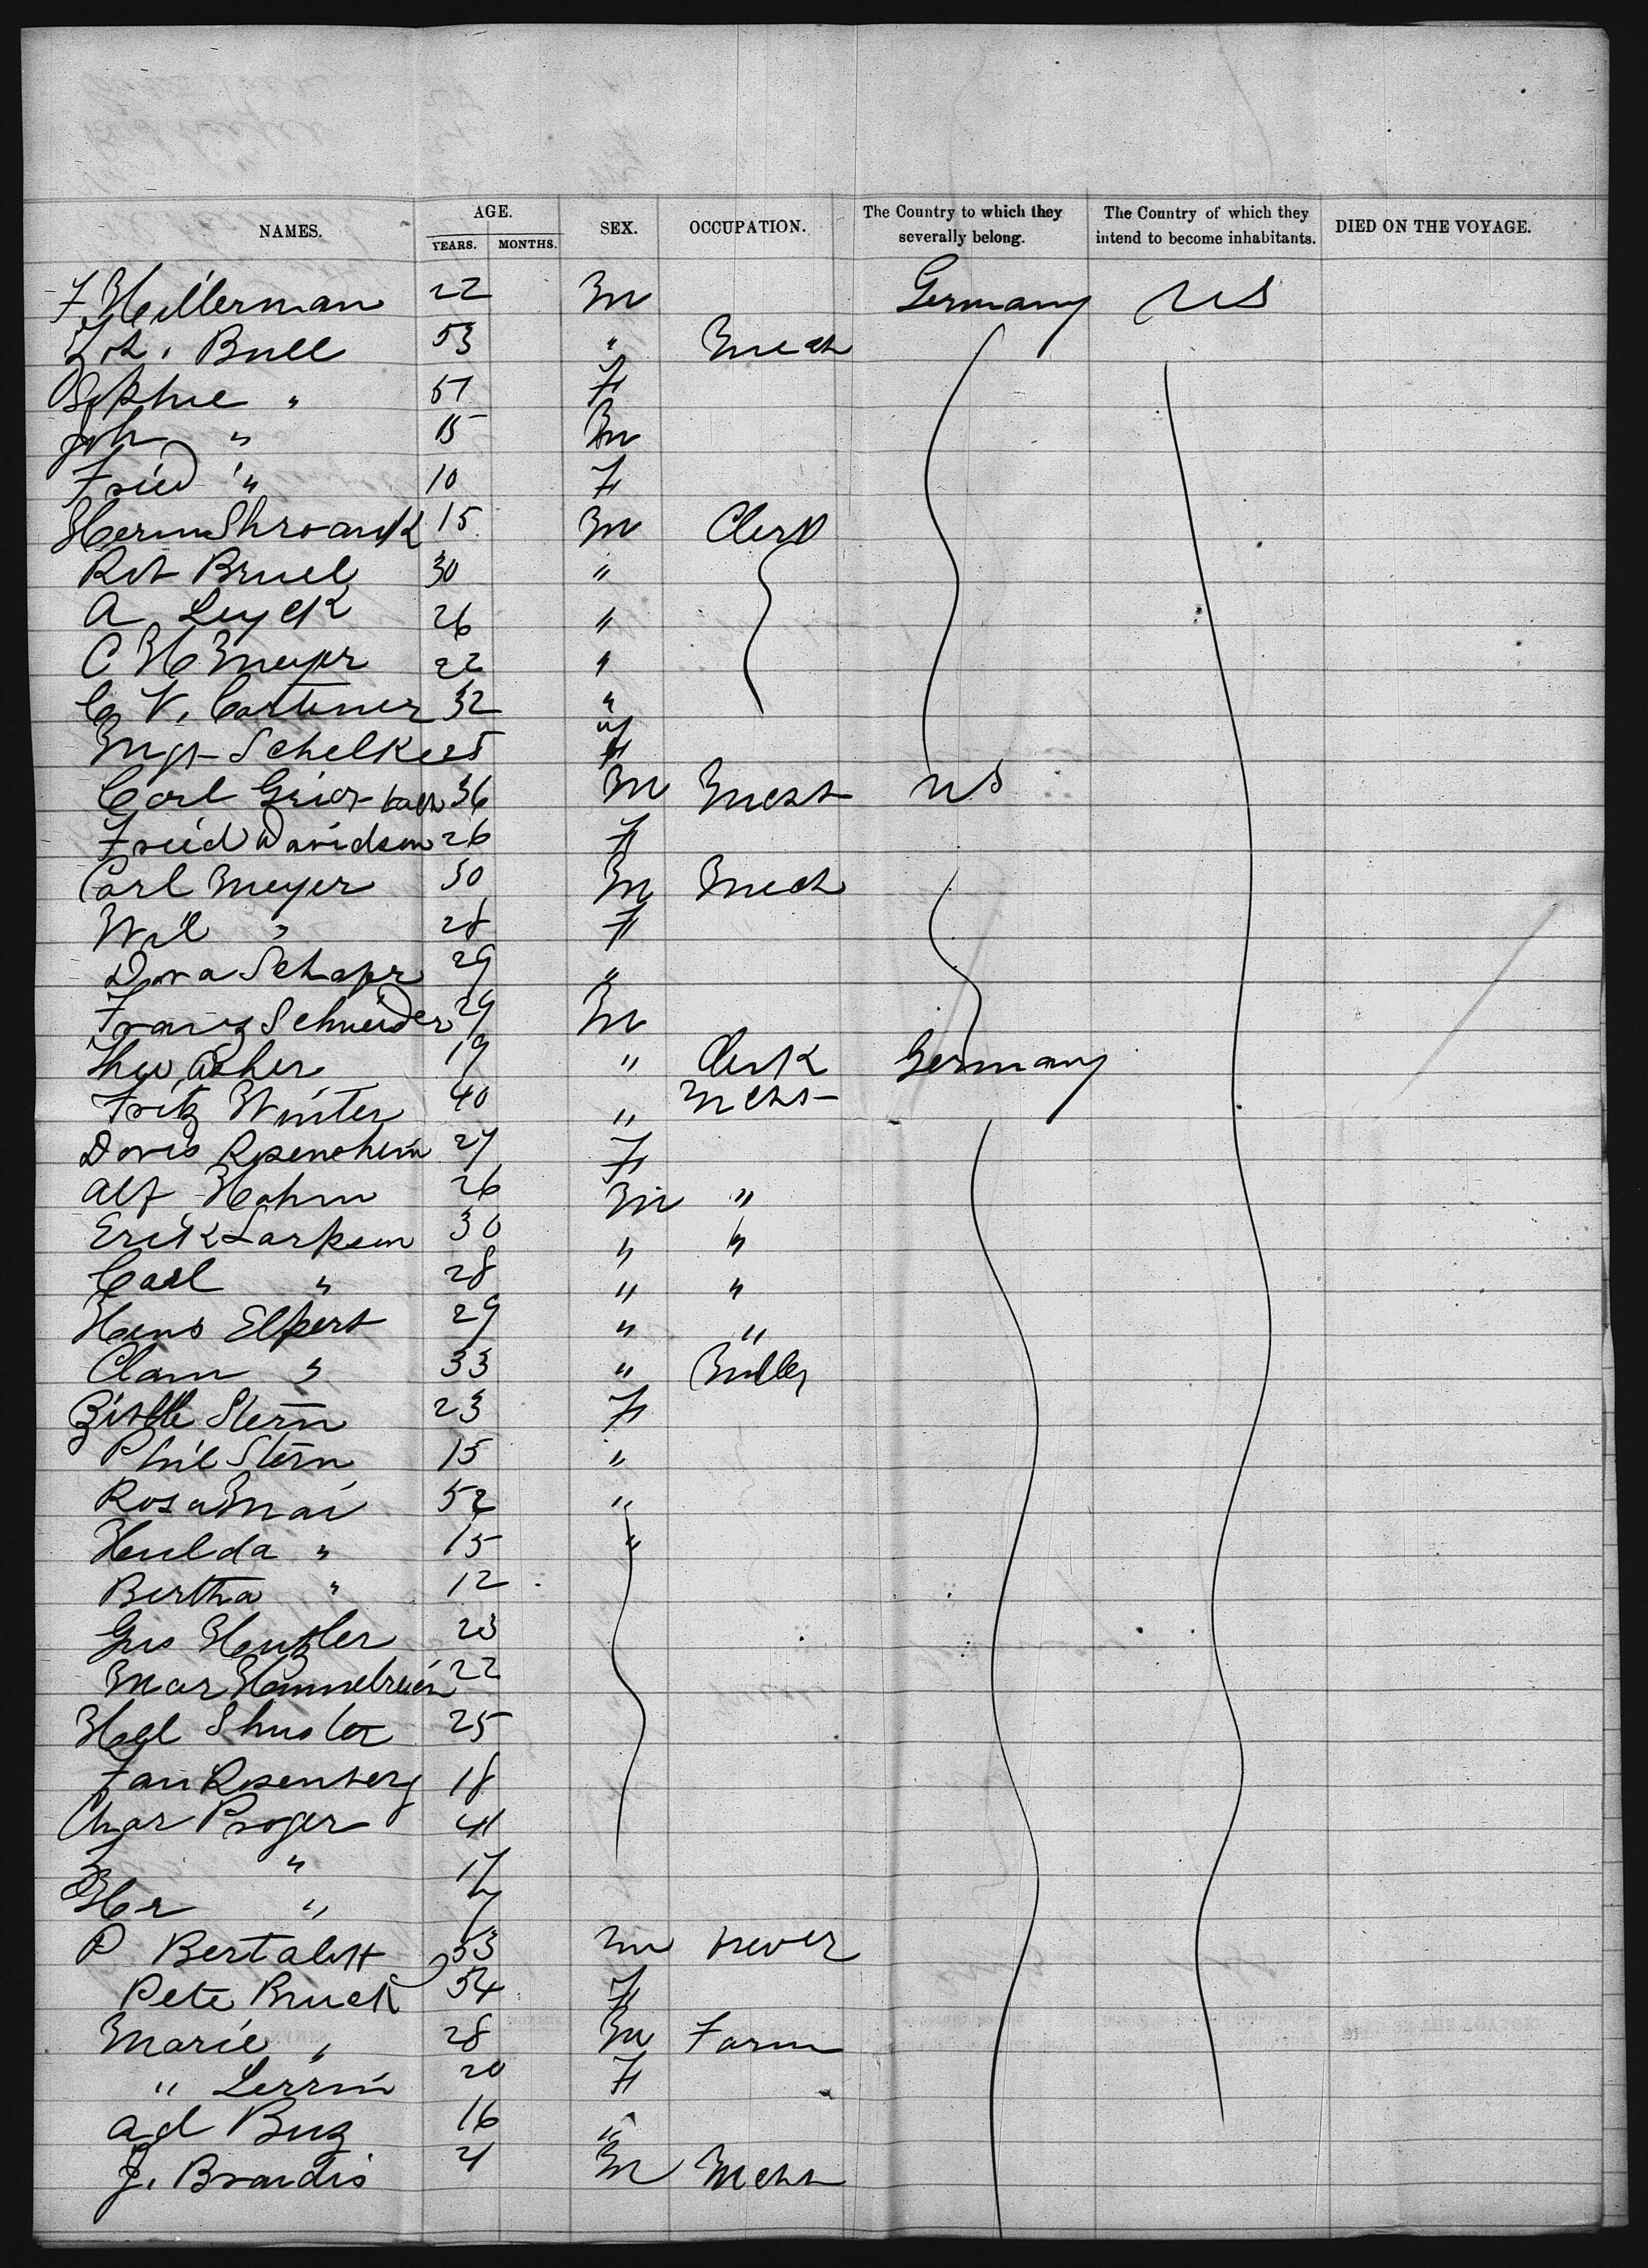 NAMES. AGE. SEX. OCCUPATION. The Country to which they severally belong. The Country of which they intend to become inhabitants. DIED ON THE VOYAGE.
YEARS. MONTHS.
F Hellerman 22 M Germany US
Joh. Bull 53 " Mech
Sophie " 51 F
Joh " 15 M
Fried " 10 F
Herm Shroank 15 M Clerk
Rob Bruel 30 "
A Leyck 26 "
C H Meyer 22 "
C V. Cortiner 32 "
Mgt Schelke 25 F
Carl Grier 36 M Mess US
Fried Davidson 26 F
Carl Meyer 50 M Mech
Wil " 28 F
Dora Schafer 29 "
Franz Schneider 29 M
Theo Asher 19 " Clerk Germany
Fritz Winter 40 " Mess
Doris Rosenheim 27 F
Alf Hahm 26 M "
Erik Larsson 30 " "
Carl " 28 " "
Hans Elpert 29 " "
Clam " 33 " Miller
Stern 23 F
Phil Stern 15 "
Rosa Mai 52 "
Hulda " 15 "
Bertha " 12
Gus Hentzler 23
Mar 22
Hel Shuster 25
Fan Rosenberg 18
Char Proger 41
" 17
Her " 7
P Bertalott 33 M
Pete Bruck 54 F
Marie " 28 M Farm
" Lerrin 20 F
Ad Buz 16 "
J. Brandis 21 M Mess